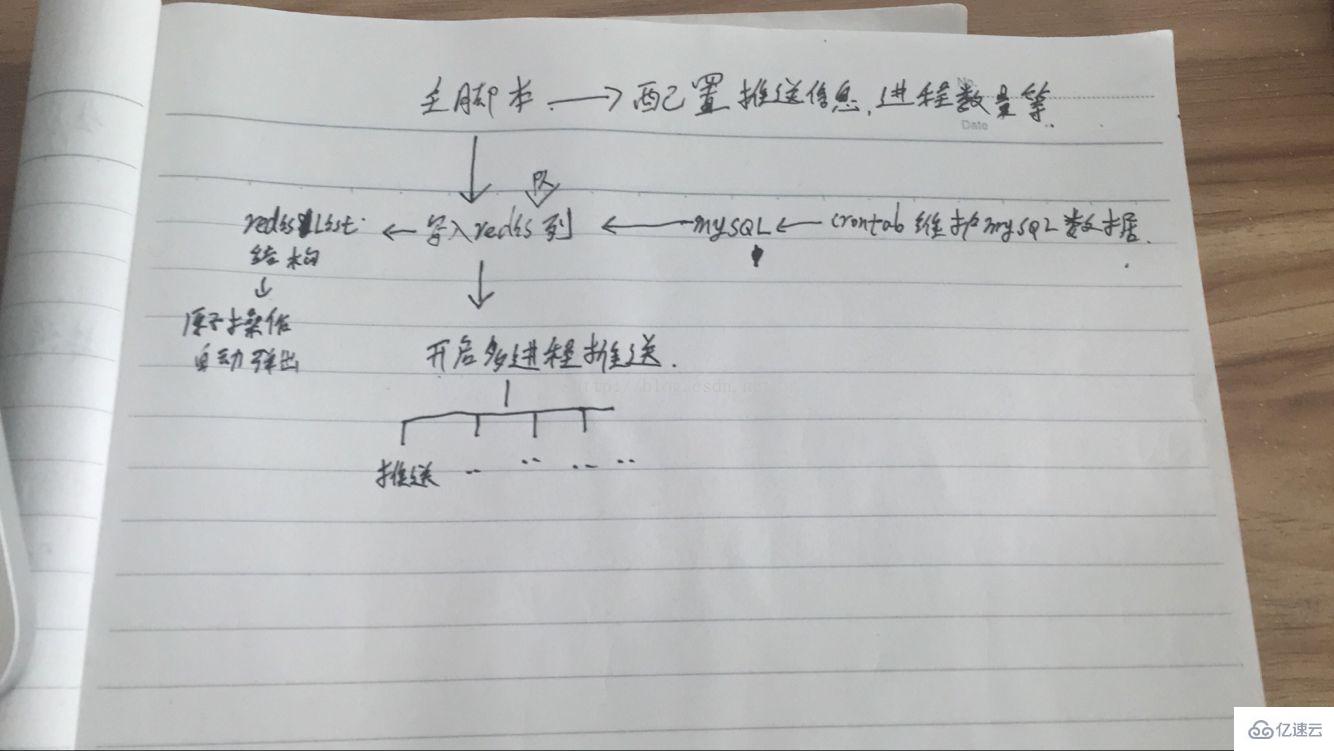 主脚本 → 配置推送信息、进程数量等.
No
Date
队
redis List ← 写入redis列 ← mySQL ← crontab 维护mySQL数据.
结构
原子操作
自动弹出
开启多进程推送.
http://blog.csdn.net/
推送 .. .. .. ..
亿速云